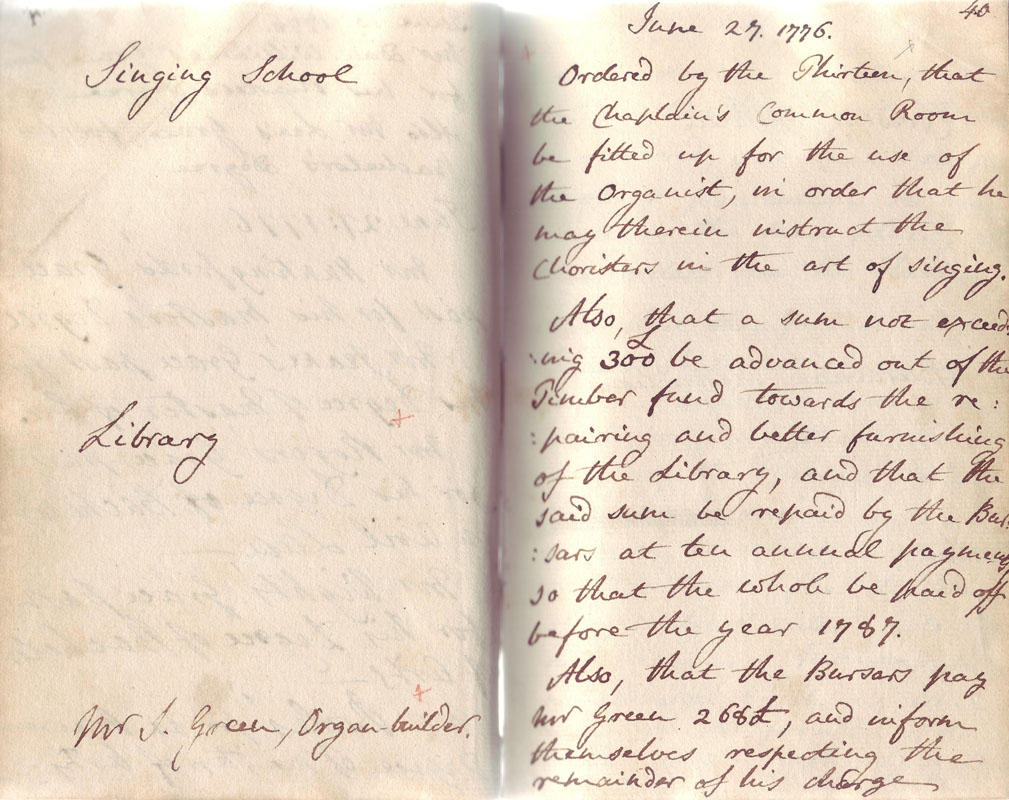 Singing School
Library
Mr S. Green, Organ-builder.
40
June 27. 1776.
Ordered by the Thirteen, that
the Chaplain's Common Room
be fitted up for the use of
the Organist, in order that he
may therein instruct the
Choristers in the art of singing.
Also, that a sum not exceed
:ing 300£ be advanced out of the
Timber fund towards the re:
:pairing and better furnishing
of the Library, and that the
said sum be repaid by the Bur:
:sars at ten annual payments
so that the whole be paid off
before the year 1787.
Also, that the Bursars pay
Mr Green 268£, and inform
themselves respecting the
remainder of his charge